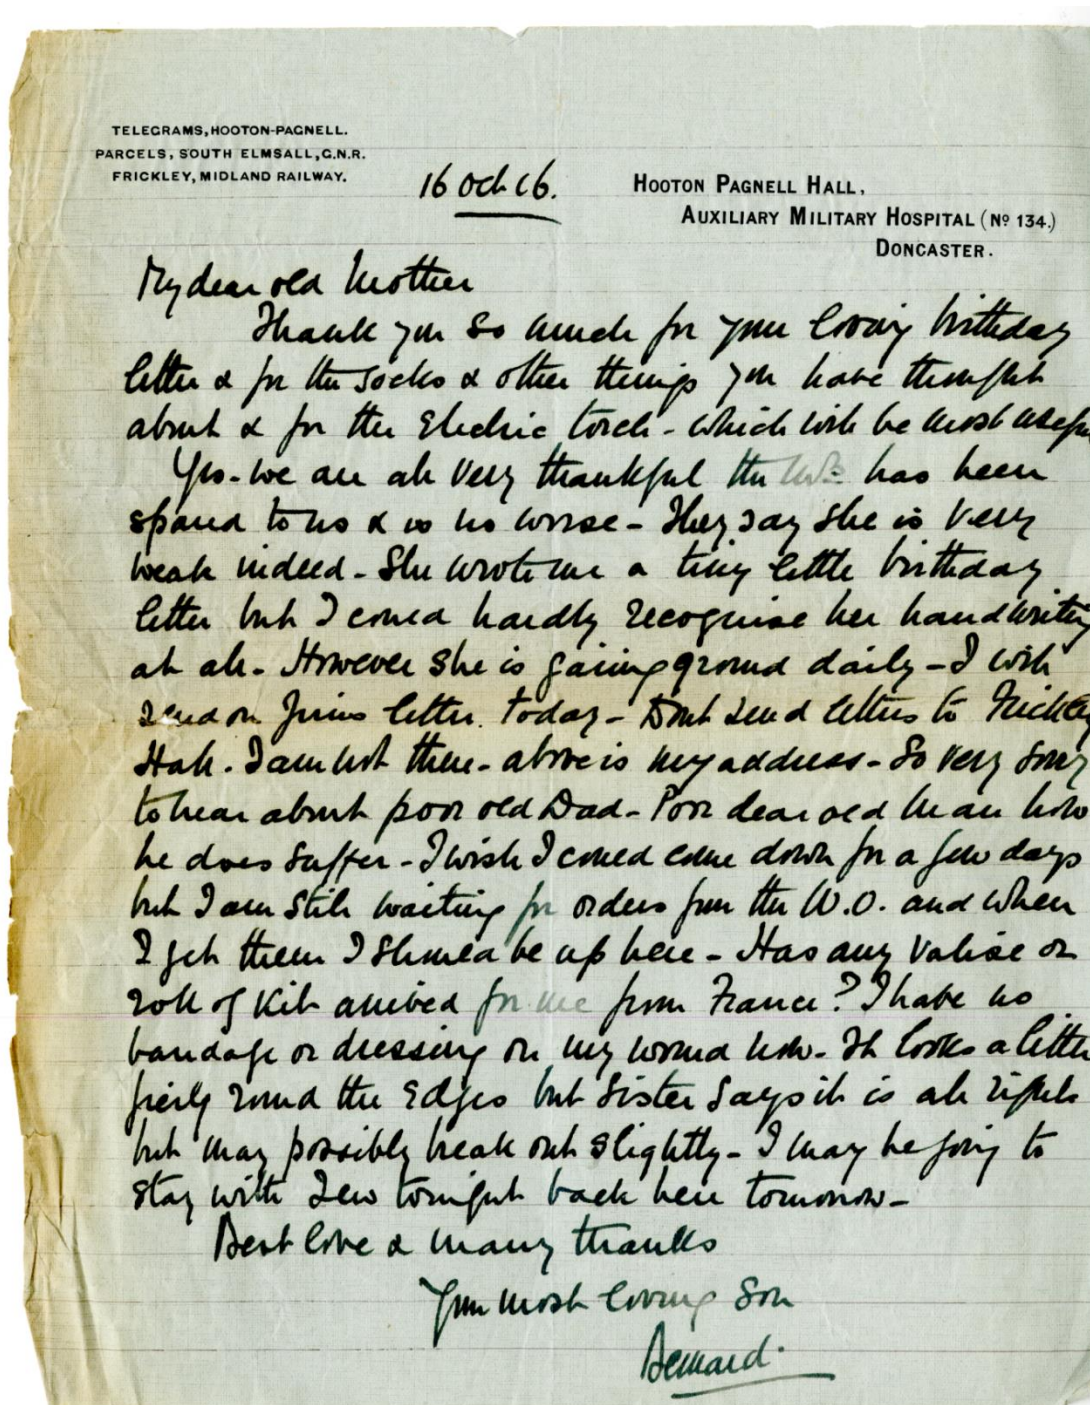 TELEGRAMS, HOOTON-PAGNELL.
PARCELS, SOUTH ELMSALL, G.N.R.
FRICKLEY, MIDLAND RAILWAY.
16 Oct 16.
HOOTON PAGNELL HALL,
AUXILIARY MILITARY HOSPITAL (Nº 134.)
DONCASTER.
My dear old Mother
Thank you so much for your loving birthday
letter & for the socks & other things you have thought
about & for the Electric torch - which will be most useful
Yes - we are all very thankful the has been
spared to us & is no worse - They say she is very
weak indeed - She wrote me a tiny little birthday
letter but I could hardly recognise her handwriting
at all - However she is gaining ground daily - I will
send on letter today - Dont send letters to Frickley
Hall. I am not there - above is my address - So very sorry
to hear about poor old Dad - Poor dear old man how
he does suffer - I wish I could come down for a few days
but I am still waiting for orders from the W.O. and when
I get them I should be up here - Has any valise or
roll of kit arrived for me from France? I have no
bandage or dressing on my wound now. It looks a little
fiery round the edges but Sister says it is all right
but may possibly break out slightly - I may be going to
stay with tonight back here tomorrow -
Best love & many thanks
Your most loving Son
Bernard.